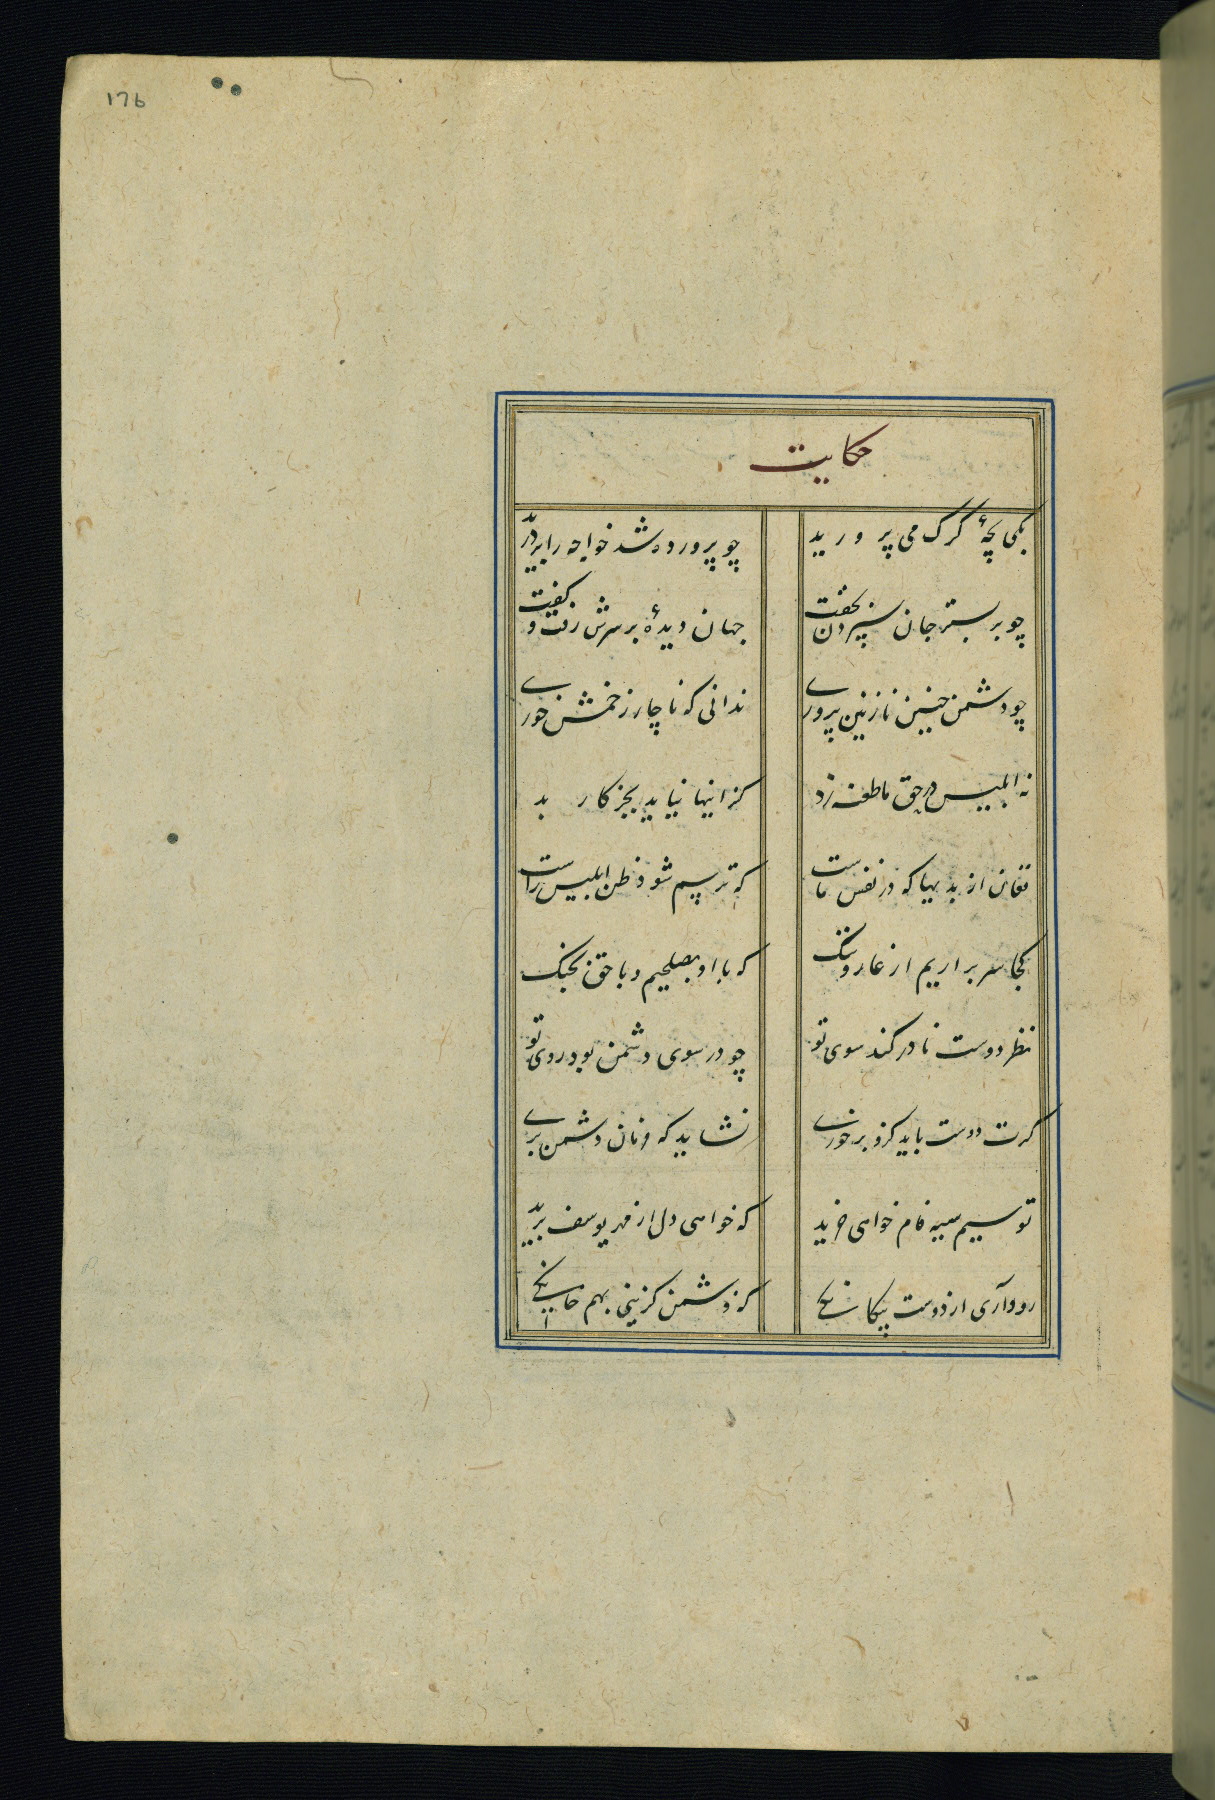 176
حکایت
یکی بچهٔ گرگ می پرورید چو پرورده شد خواجه را بردرید
چو بر بستر جان سپردن بخفت جهان دیدهٔ بر سرش رفت و گفت
چو دشمن چنین نازنین پروری ندانی که ناچار زخمش خوری
نه ابلیس در حق ما طعنه زد کز اینها نیاید بجز کار بد
فغان از بدیها که در نفس ماست که ترسم شود ظن ابلیس راست
کجا سر براریم از عار و ننگ که با او بصلحیم و با حق بجنگ
نظر دوست نادر کند سوی تو چو در سوی دشمن بود روی تو
گرت دوست باید کزو برخوری نشاید که فرمان دشمن بری
تو سیم سیه فام خواهی خرید که خواهی دل از مهر یوسف برید
روا آری از دوست بیکانکی که دشمن کزینی بهم خانکی